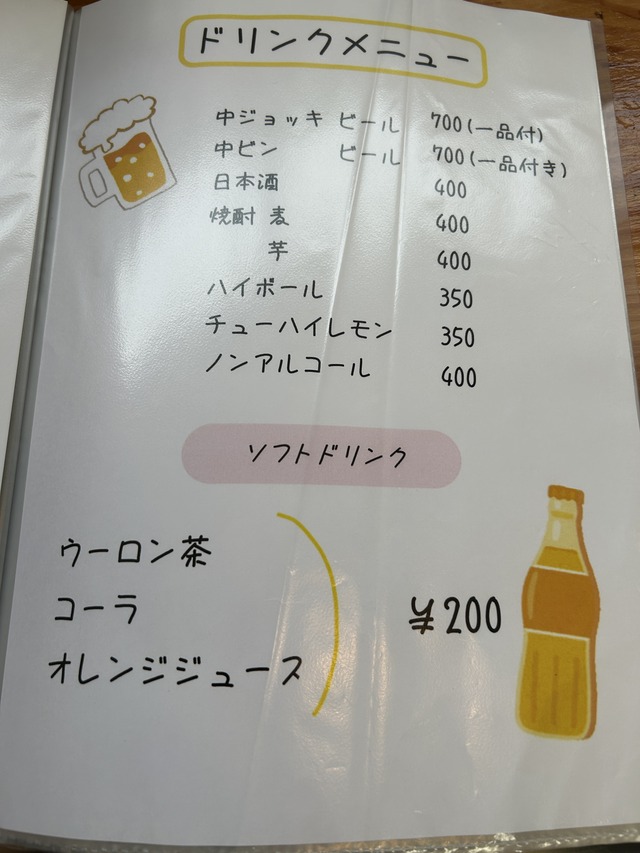 ドリンクメニュー
中ジョッキ ビール 700(一品付)
中ビン ビール 700(一品付き)
日本酒 400
焼酎 麦 400
芋 400
ハイボール 350
チューハイレモン 350
ノンアルコール 400
ソフトドリンク
ウーロン茶
コーラ
オレンジジュース
¥200